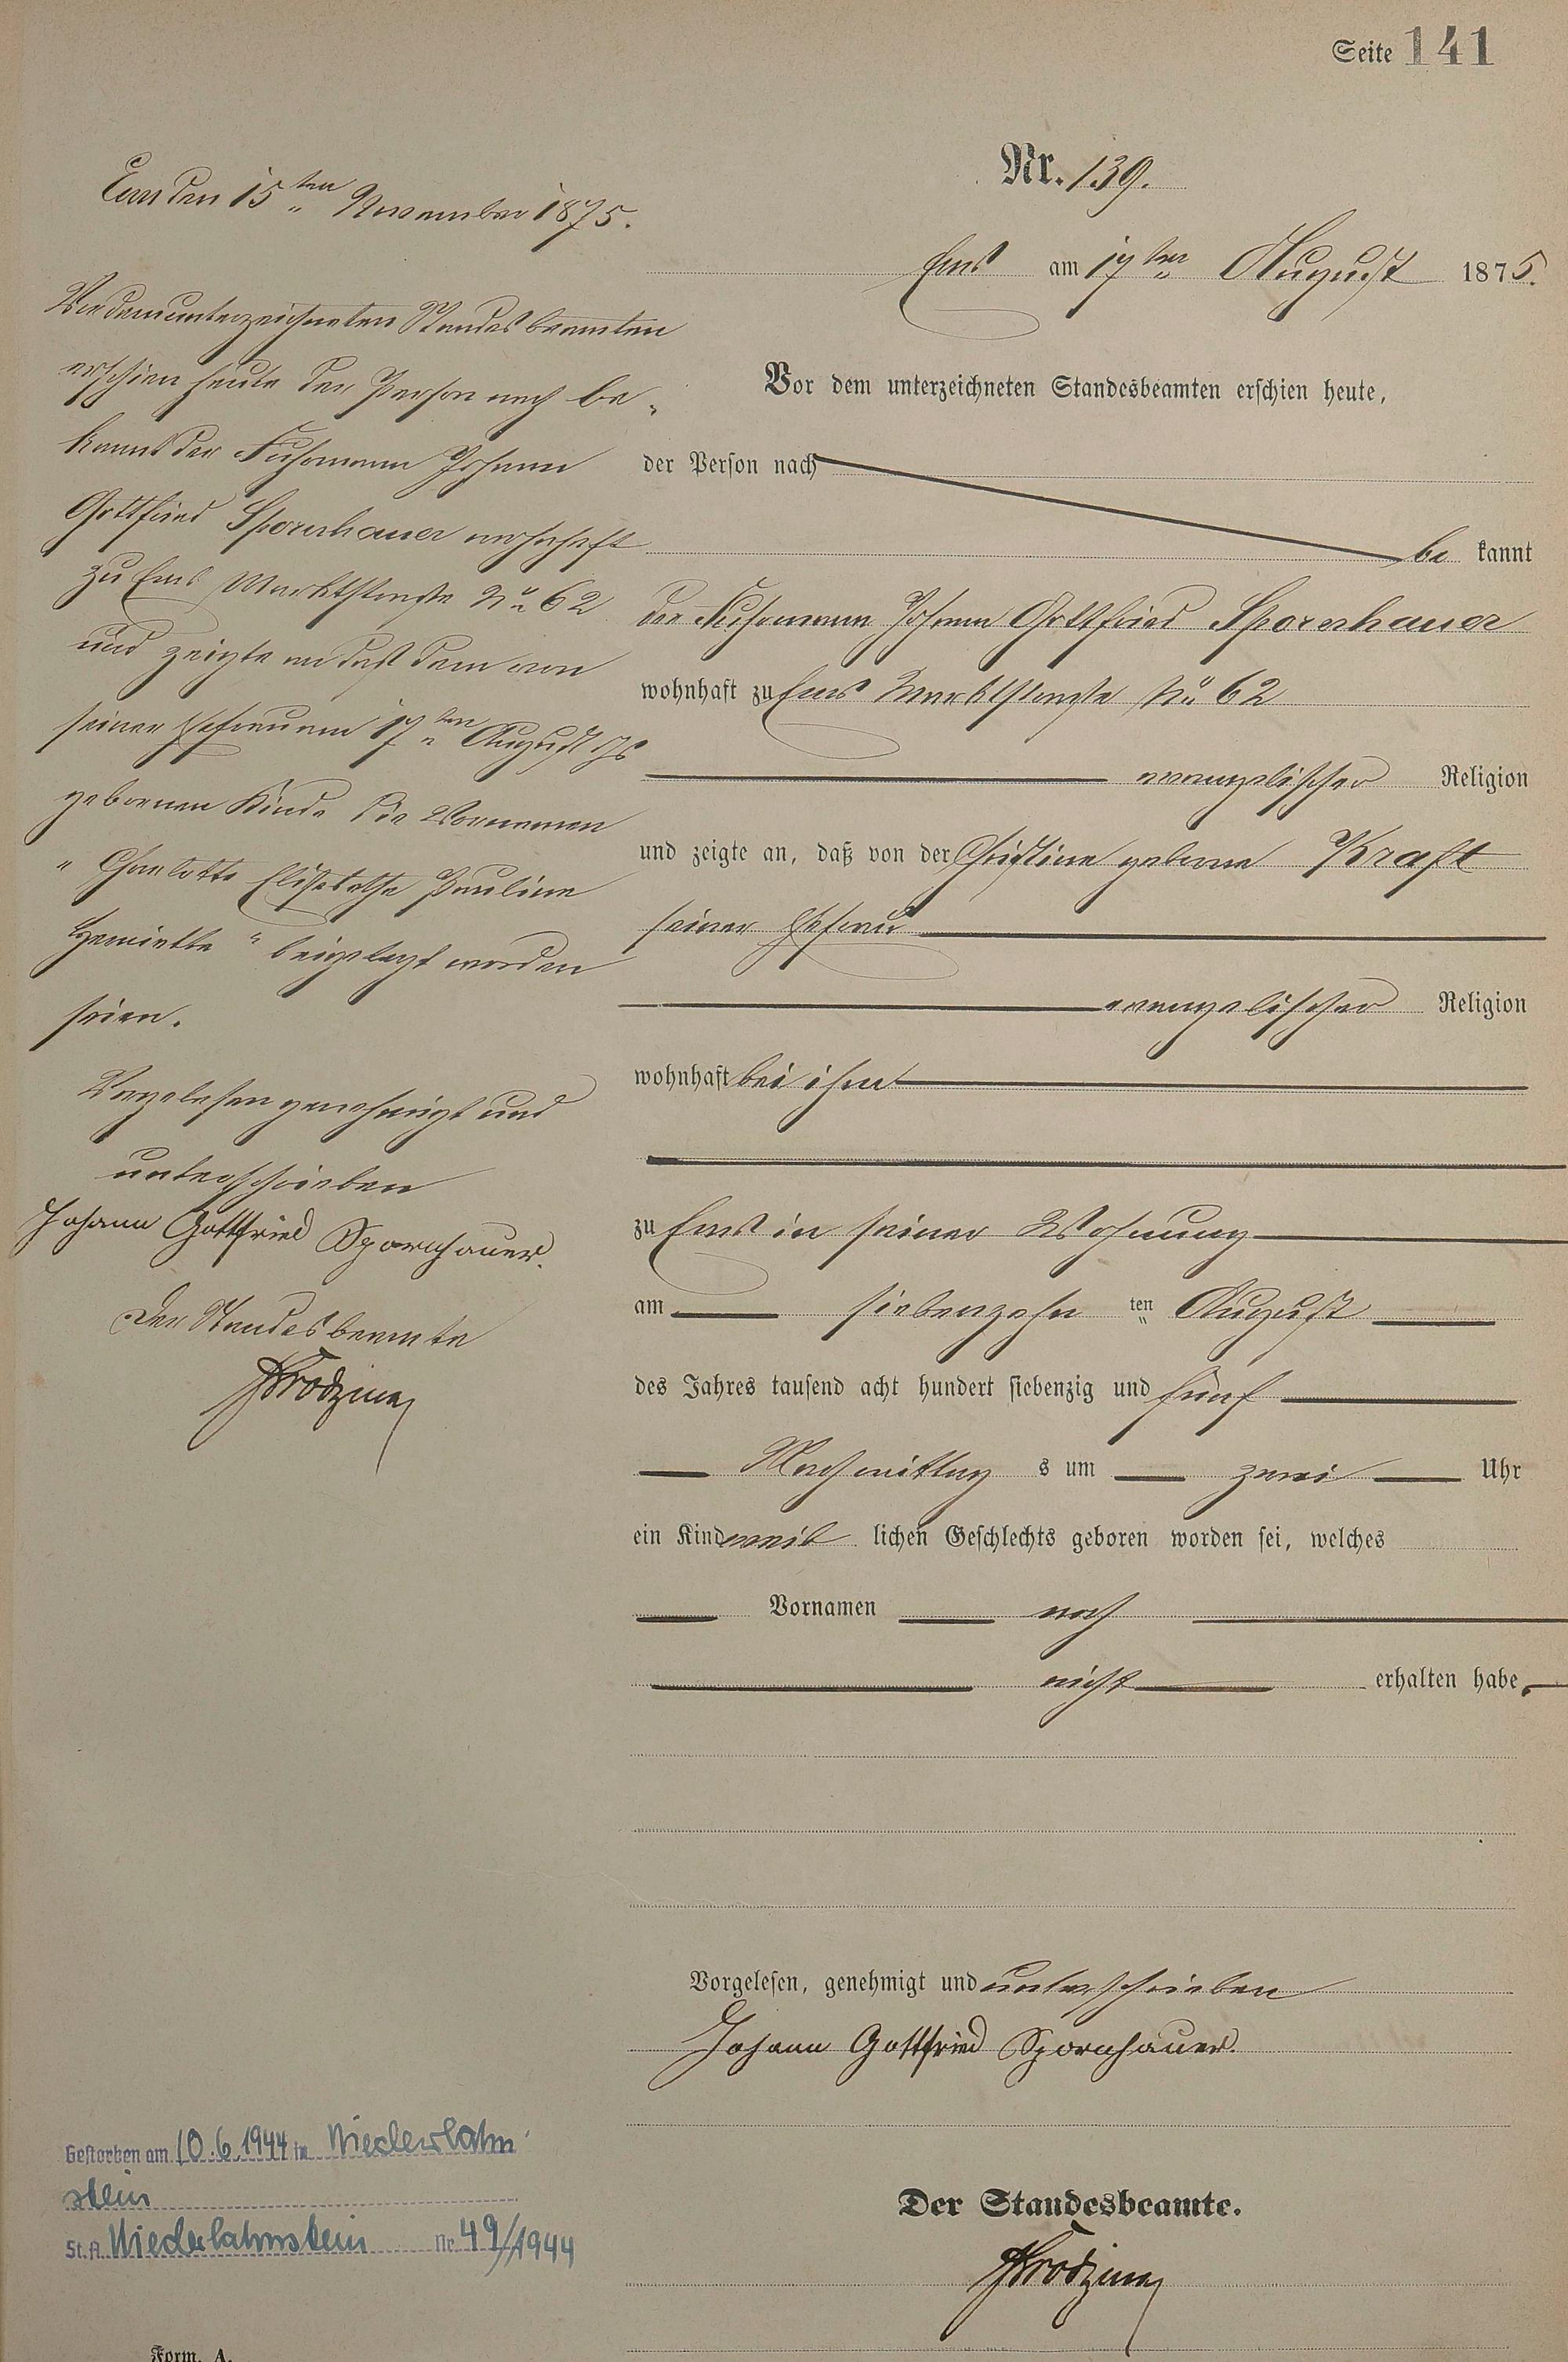 Seite 141
Nr. 139.
Ems am 17ten August 1875.
Vor dem unterzeichneten Standesbeamten erschien heute,
der Person nach
be kannt
der Fuhrmann Johann Gottfried Spornhauer
wohnhaft zu Ems Marktstraße No 62
evangelischer Religion
und zeigte an, daß von der Christine geborne Kraft
seiner Ehefrau
evangelischer Religion
wohnhaft bei ihm
zu Ems in seiner Wohnung
am siebenzehn ten August
des Jahres tausend acht hundert siebenzig und fünf
Nachmittag s um zwei Uhr
ein Kind weib lichen Geschlechts geboren worden sei, welches
Vornamen noch
nicht erhalten habe.
Vorgelesen, genehmigt und unterschrieben
Johann Gottfried Spornhauer.
Der Standesbeamte.
Ems den 15ten November 1875.
Vor dem unterzeichneten Standesbeamten
erschien heute der Person nach be-
kannt der Fuhrmann Johann
Gottfried Spornhauer wohnhaft
zu Ems Marktstraße No 62
und zeigte an daß dem von
seiner Ehefrau am 17ten August djs
gebornen Kinde die Vornamen
"Charlotte Elisabethe Pauline
Henriette" beigelegt worden
seien.
Vorgelesen genehmigt und
unterschrieben
Johann Gottfried Spornhauer.
Der Standesbeamte
Gestorben am 10.6.1944 in Niederlahn
stein
St.A. Niederlahnstein Nr. 49/1944
Form. A.